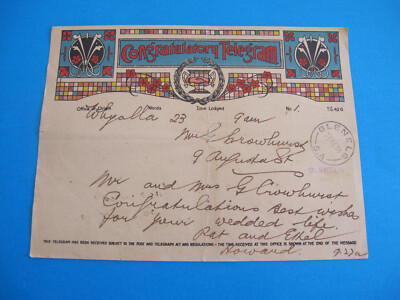 Congratulatory Telegram
Office of Origin Words Time Lodged No 1. TG42G
Whyalla 23 9am
Mr G Crowhurst
9 Augusta St
GLENELG
Mr and Mrs G Crowhurst
Congratulations Best wishes
for your wedded life.
Pat and Ethel
Howard.
THIS TELEGRAM HAS BEEN RECEIVED SUBJECT TO THE POST AND TELEGRAPH ACT AND REGULATIONS - THE TIME RECEIVED AT THIS OFFICE IS SHOWN AT THE END OF THE MESSAGE